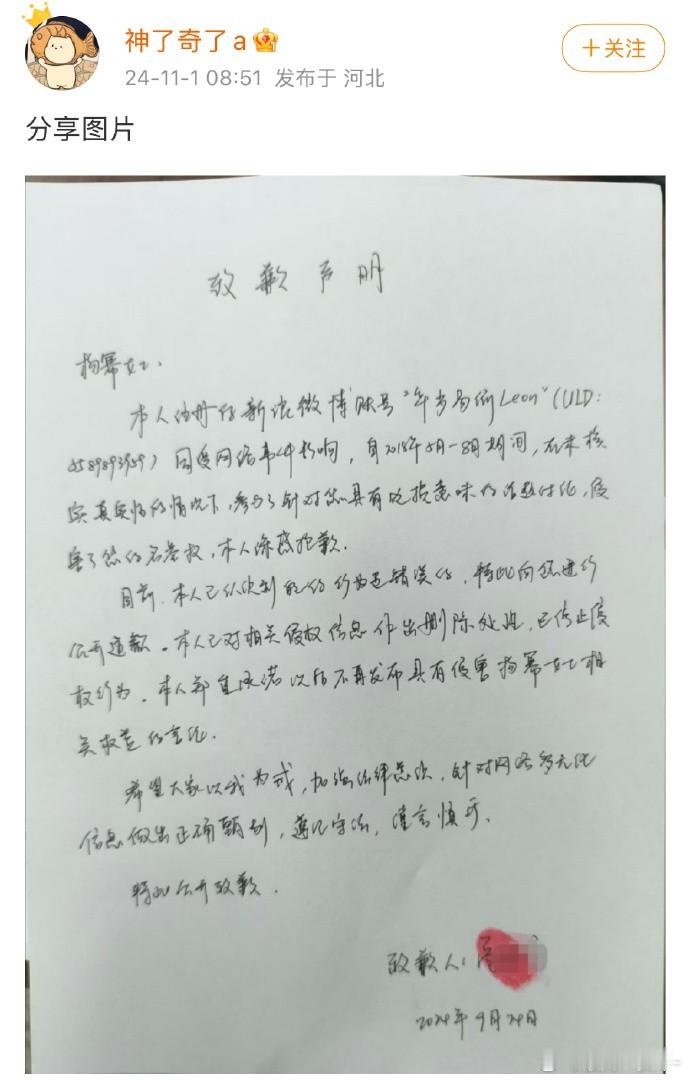 神了奇了a
+关注
24-11-1 08:51 发布于 河北
分享图片
致歉声明
杨幂女士：
本人注册在新浪微博账号"年岁Leon"(UID:
)因受网络事件影响，自2018年5月-8月期间，在未核
实真实性的情况下，参与了针对您具有贬损意味的话题讨论，侵
害了您的名誉权，本人深感抱歉．
目前，本人已认识到我的行为是错误的，特此向您进行
公开道歉．本人已对相关侵权信息作出删除处理，已停止侵
权行为．本人郑重承诺以后不再发布具有侵害杨幂女士相
关权益的言论．
希望大家以我为戒，加强法律意识，针对网络多元化
信息做出正确甄别，遵纪守法，谨言慎行．
特此公开致歉．
致歉人：
2024年9月29日